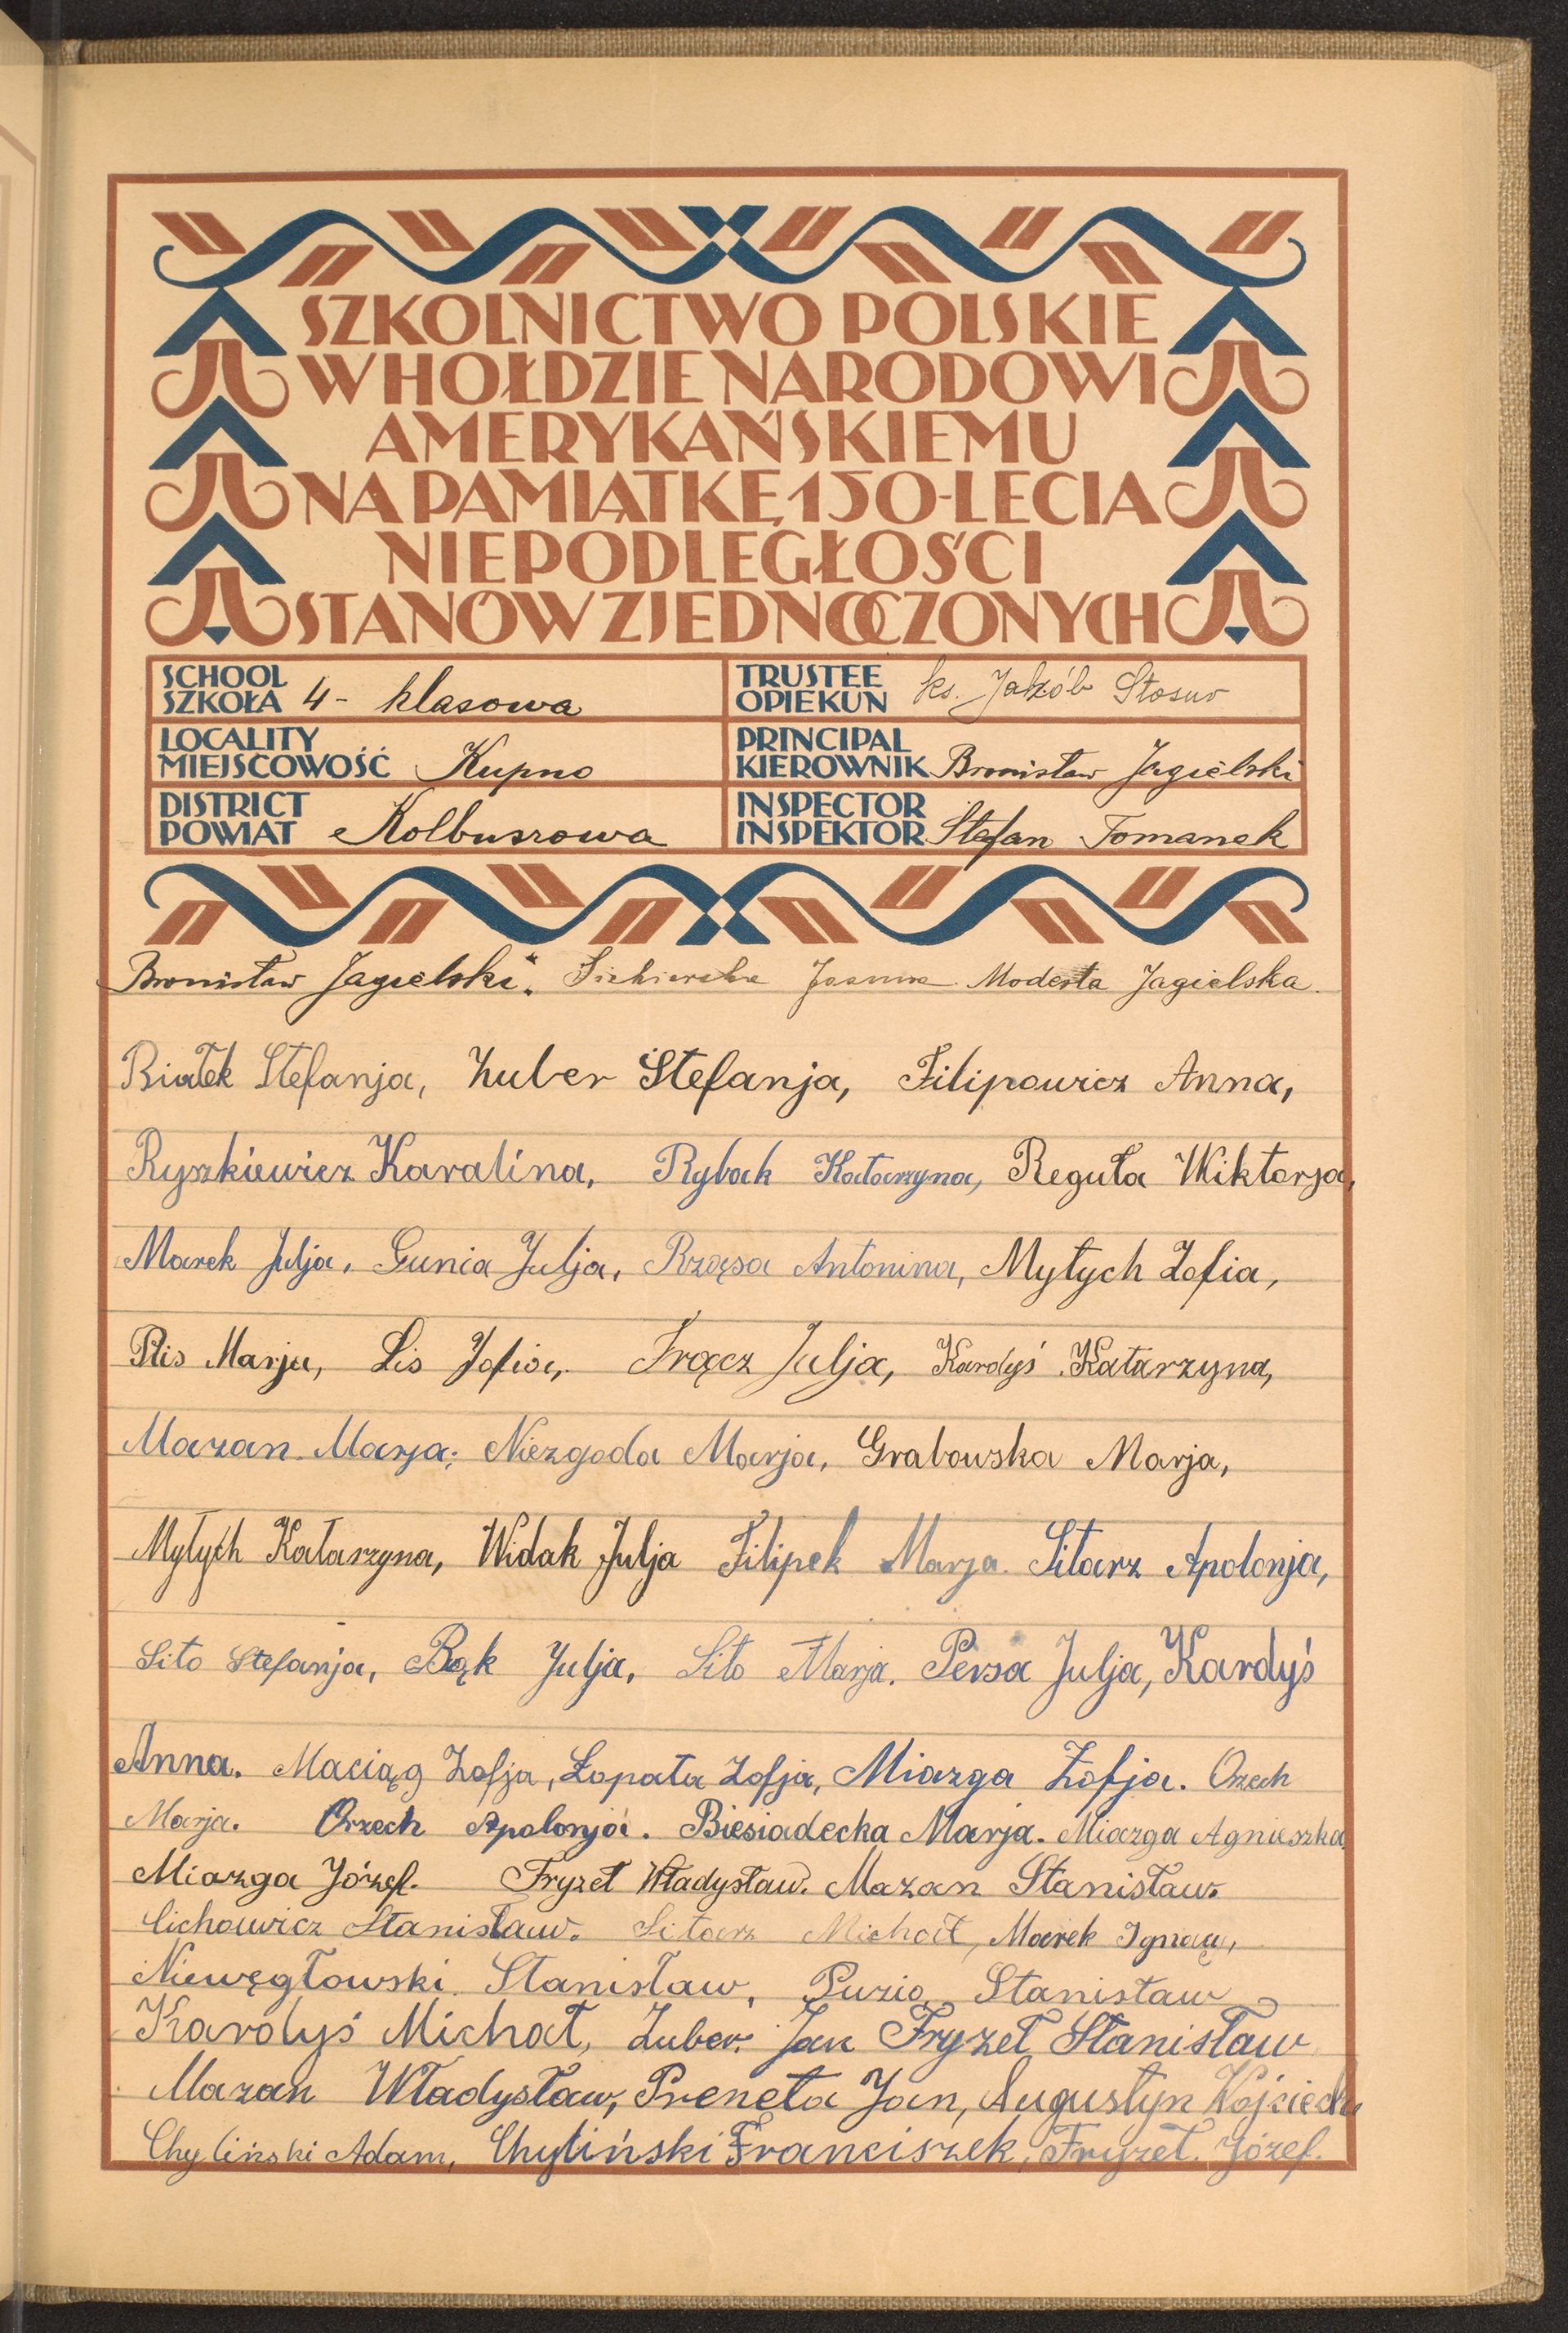 SZKOLNICTWO POLSKIE
W HOŁDZIE NARODOWI
AMERYKAŃSKIEMU
NA PAMIĄTKĘ 150-LECIA
NIEPODLEGŁOŚCI
STANÓW ZJEDNOCZONYCH
SCHOOL
SZKOŁA 4- klasowa
TRUSTEE
OPIEKUN ks. Jakób Stosur
LOCALITY
MIEJSCOWOŚĆ Kupno
PRINCIPAL
KIEROWNIK Bronisław Jagielski
DISTRICT
POWIAT Kolbuszowa
INSPECTOR
INSPEKTOR Stefan Tomanek
Bronisław Jagielski. Joanna Modesta Jagielska.
Białek Stefanja, Zuber Stefanja, Filipowicz Anna,
Ryszkiewicz Karalina, Rybak Katarzyna, Reguła Wiktorja,
Marek Julja, Gunia Julja, Rząsa Antonina, Mytych Zofia,
Plis Marja, Lis Zofia, Frącz Julja, Kardyś Katarzyna,
Mazan Marja, Niezgoda Marja, Grabowska Marja,
Mytych Katarzyna, Widak Julja Filipek Marja. Sitarz Apolonja,
Sito Stefanja, Bąk Julja, Sito Marja. Persa Julja, Kardyś
Anna. Maciąg Zofja, Łopata Zofja, Miazga Zofja. Orzech
Marja. Orzech Apolonja. Biesiadecka Marja. Miazga Agnieszka
Miazga Józef. Fryzeł Władysław. Mazan Stanisław.
Cichowicz Stanisław. Sitarz Michał, Marek Ignacy,
Niewęgłowski Stanisław, Puzio Stanisław
Kardyś Michał, Zuber Jan Fryzeł Stanisław
Mazan Władysław, Preneta Jan, Augustyn Wojciech
Chyliński Adam, Chyliński Franciszek, Fryzeł Józef.